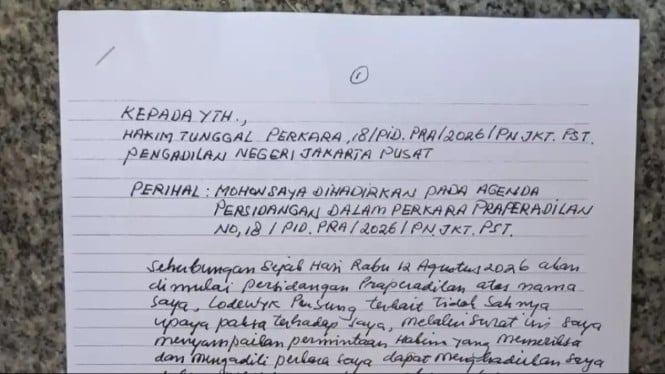 1
KEPADA YTH.,
HAKIM TUNGGAL PERKARA, 18/PID.PRA/2026/PN JKT. PST.
PENGADILAN NEGERI JAKARTA PUSAT
PERIHAL : MOHON SAYA DIHADIRKAN PADA AGENDA
PERSIDANGAN DALAM PERKARA PRAPERADILAN
NO, 18 / PID. PRA/2026/PN JKT. PST.
Sehubungan Sejak Hari Rabu 12 Agustus 2026 akan
di mulai persidangan Praperadilan atas nama
saya, Lodewyk Pusung terkait Tidak Sah nya
upaya paksa terhadap saya, melalui surat ini saya
menyampaikan permintaan Hakim yang memeriksa
dan mengadili perkara saya dapat menghadirkan saya